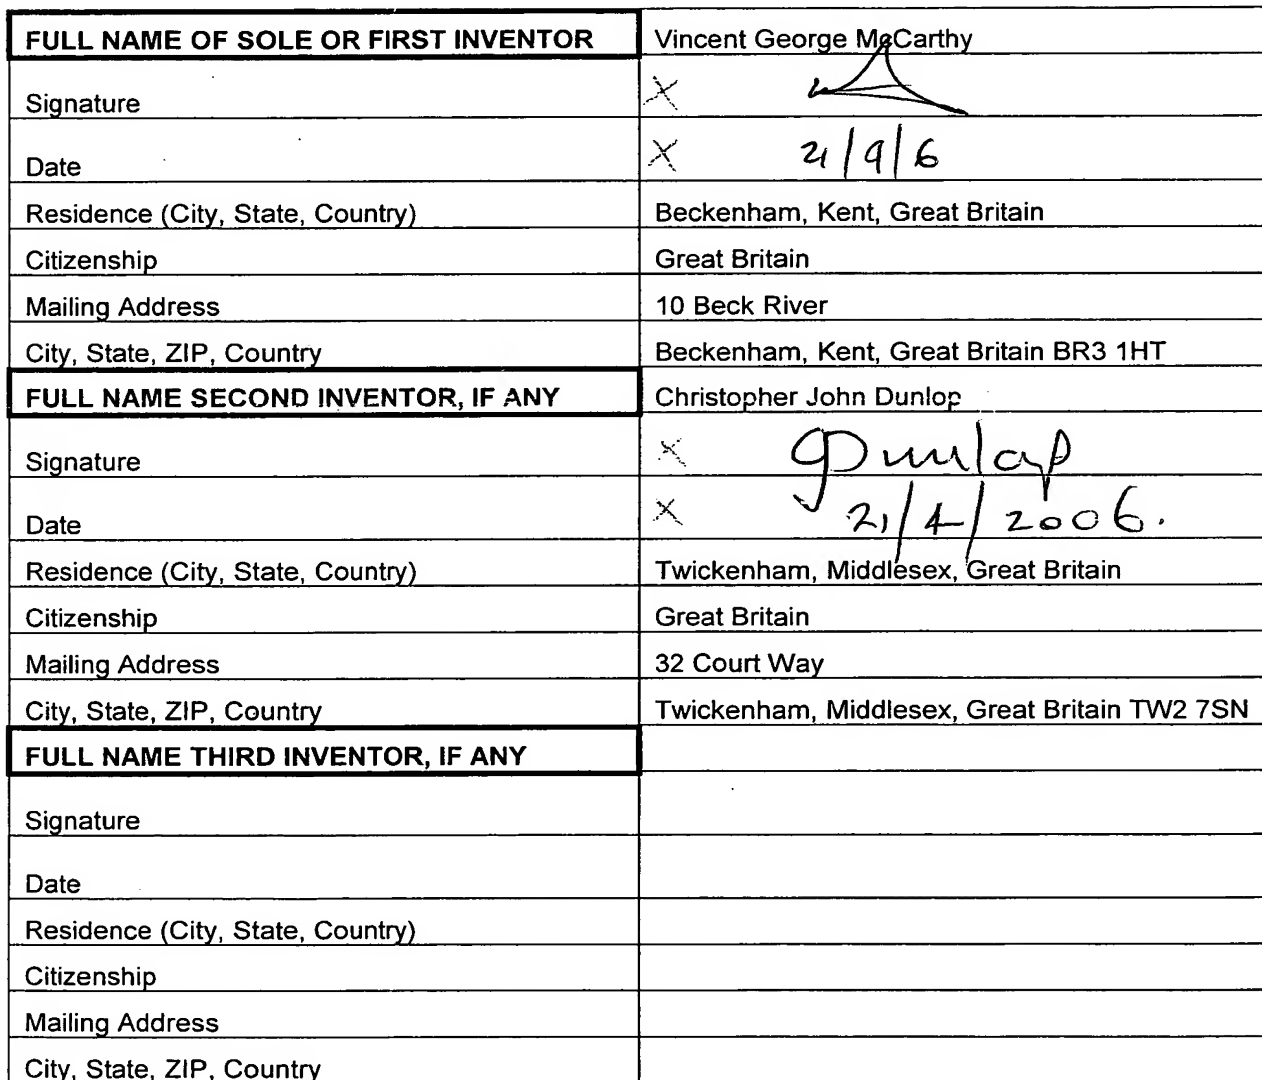 FULL NAME OF SOLE OR FIRST INVENTOR Vincent George McCarthy
Signature X
Date X 21/9/6
Residence (City, State, Country) Beckenham, Kent, Great Britain
Citizenship Great Britain
Mailing Address 10 Beck River
City, State, ZIP, Country Beckenham, Kent, Great Britain BR3 1HT
FULL NAME SECOND INVENTOR, IF ANY Christopher John Dunlop
Signature X Dunlop
Date X 21/4/2006.
Residence (City, State, Country) Twickenham, Middlesex, Great Britain
Citizenship Great Britain
Mailing Address 32 Court Way
City, State, ZIP, Country Twickenham, Middlesex, Great Britain TW2 7SN
FULL NAME THIRD INVENTOR, IF ANY
Signature
Date
Residence (City, State, Country)
Citizenship
Mailing Address
City, State, ZIP, Country